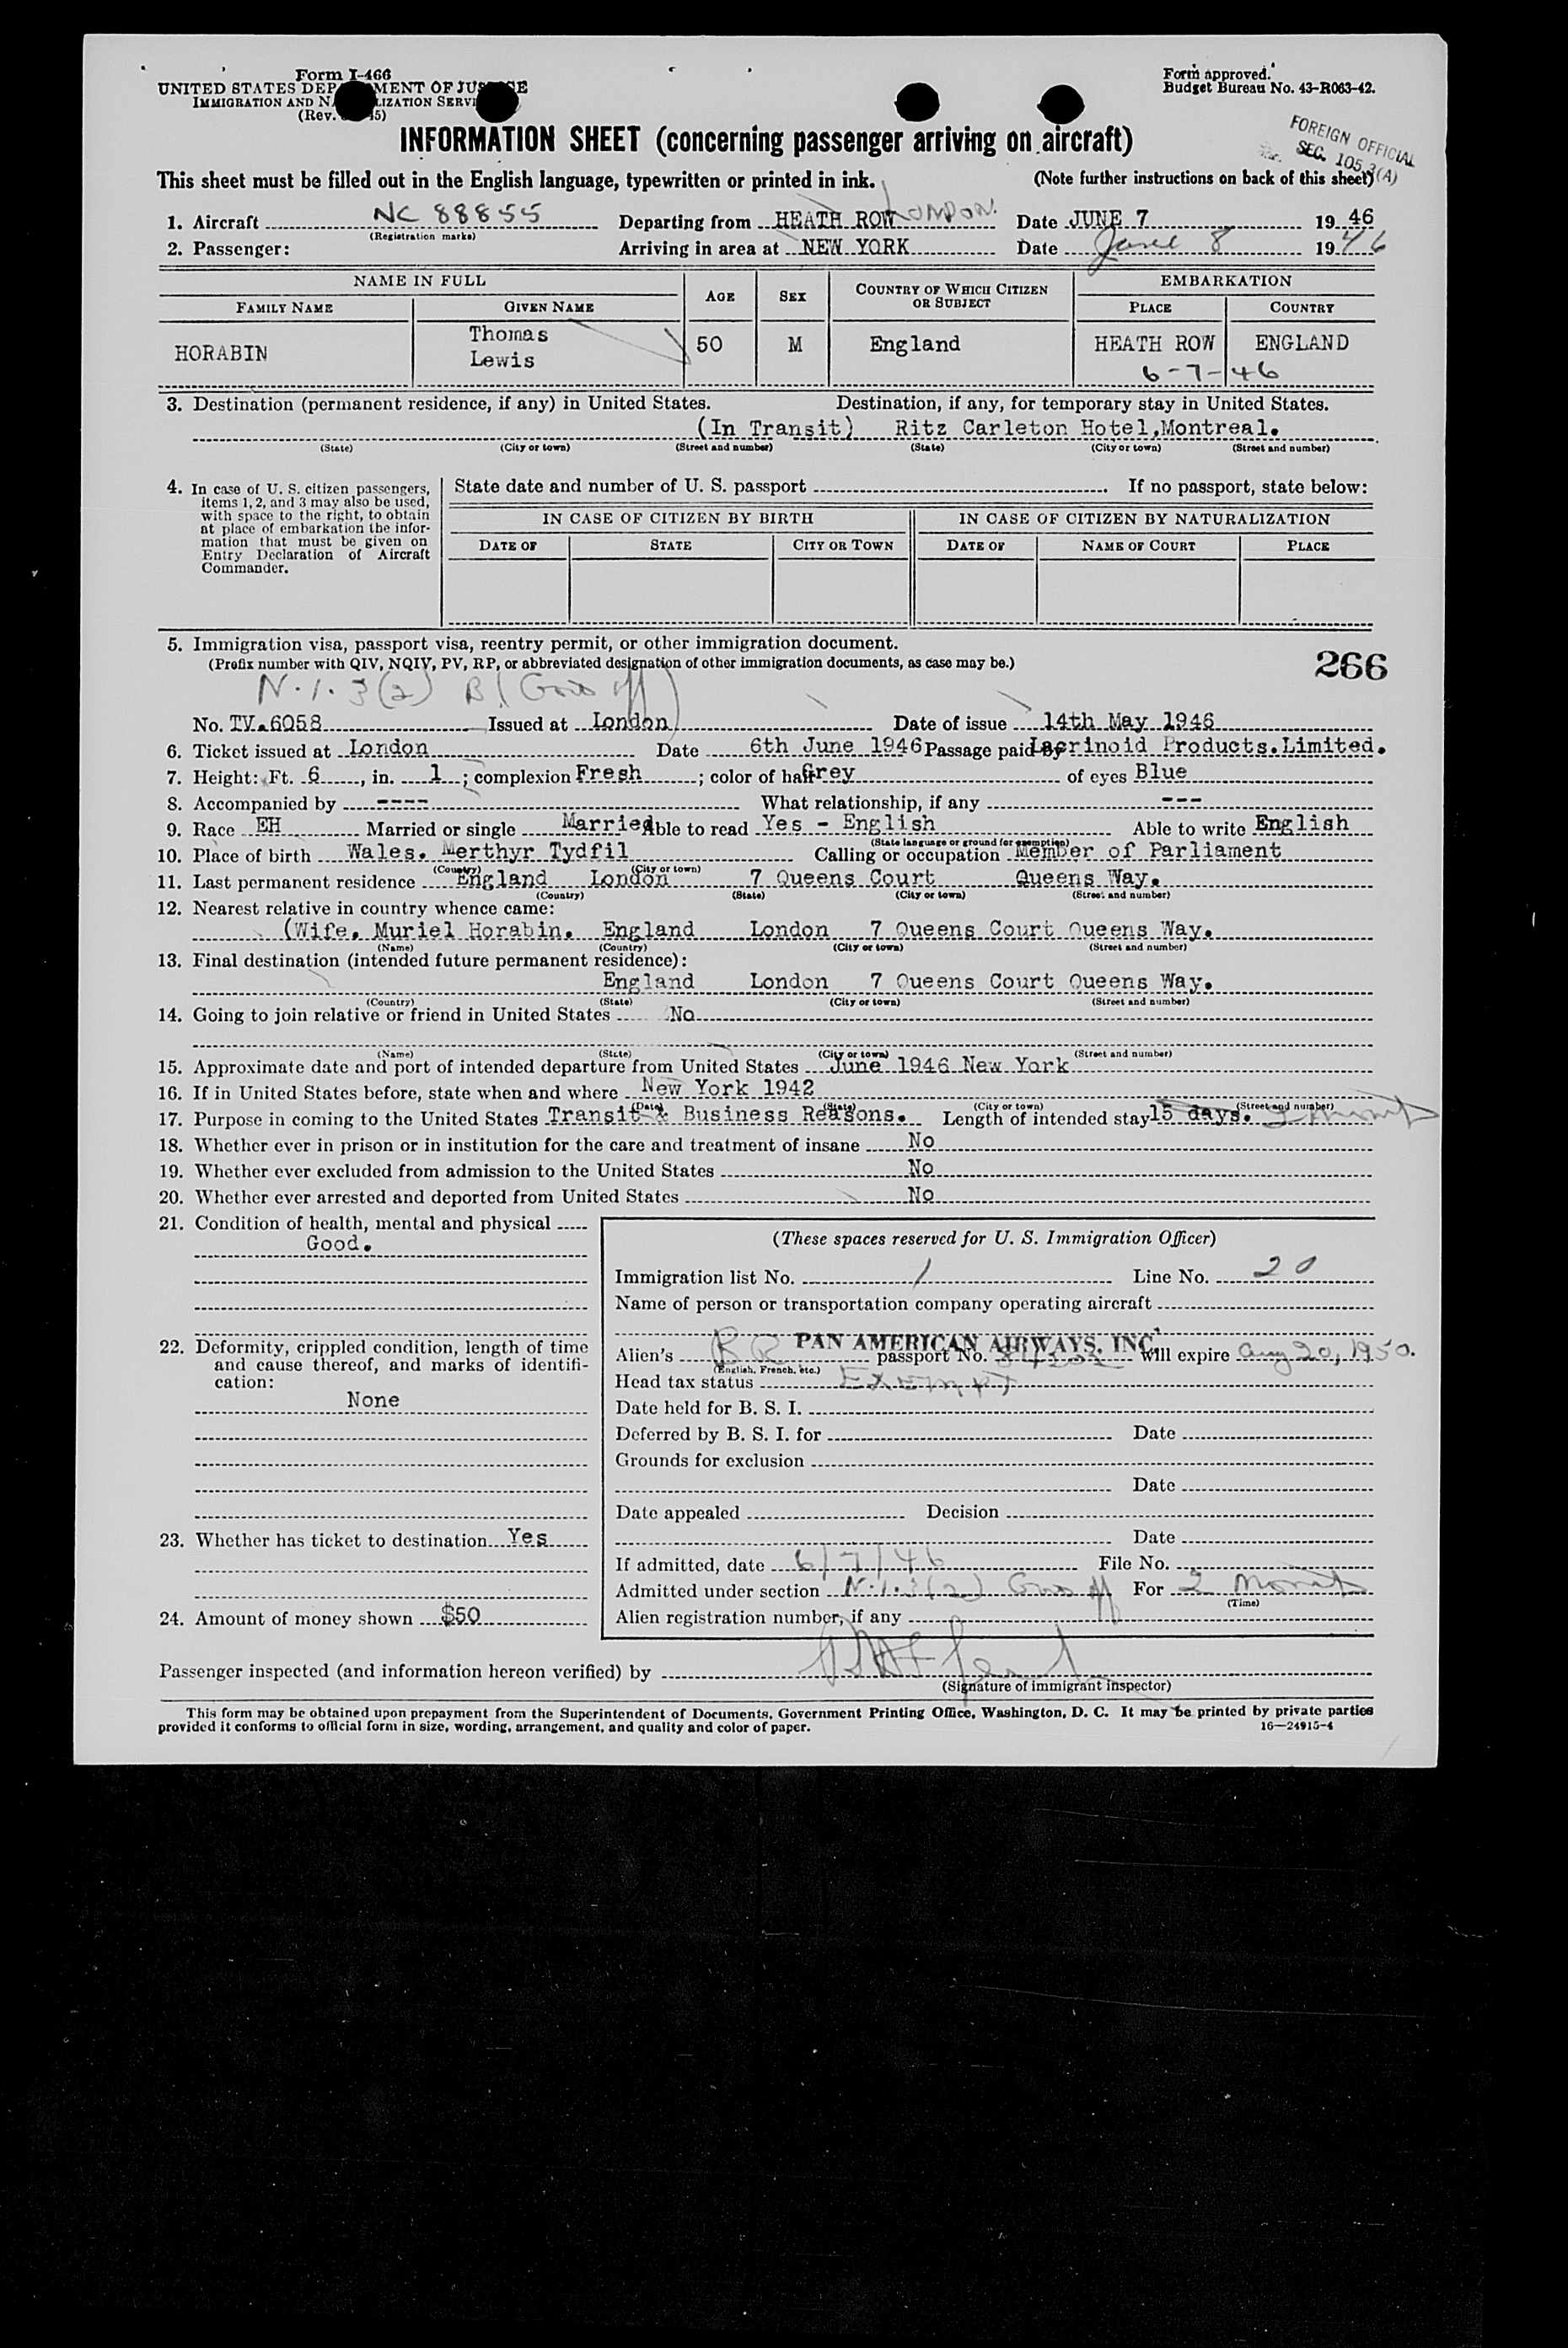 Form I-466
UNITED STATES DEP MENT OF JUS E
IMMIGRATION AND NA LIZATION SERVI
(Rev. 45)
Form approved.
Budget Bureau No. 43-R063-42.
FOREIGN OFFICIAL
SEC. 105.3(A)
INFORMATION SHEET (concerning passenger arriving on aircraft)
This sheet must be filled out in the English language, typewritten or printed in ink. (Note further instructions on back of this sheet)
1. Aircraft NC 88855 Departing from HEATH ROW LONDON. Date JUNE 7 19 46
(Registration marks)
2. Passenger: Arriving in area at NEW YORK Date June 8 19 46
NAME IN FULL AGE SEX COUNTRY OF WHICH CITIZEN OR SUBJECT EMBARKATION
FAMILY NAME GIVEN NAME PLACE COUNTRY
HORABIN Thomas Lewis 50 M England HEATH ROW ENGLAND
6-7-46
3. Destination (permanent residence, if any) in United States. Destination, if any, for temporary stay in United States.
(In Transit) Ritz Carleton Hotel,Montreal.
(State) (City or town) (Street and number) (State) (City or town) (Street and number)
4. In case of U. S. citizen passengers, items 1, 2, and 3 may also be used, with space to the right, to obtain at place of embarkation the information that must be given on Entry Declaration of Aircraft Commander.
State date and number of U. S. passport . If no passport, state below:
IN CASE OF CITIZEN BY BIRTH IN CASE OF CITIZEN BY NATURALIZATION
DATE OF STATE CITY OR TOWN DATE OF NAME OF COURT PLACE
5. Immigration visa, passport visa, reentry permit, or other immigration document.
(Prefix number with QIV, NQIV, PV, RP, or abbreviated designation of other immigration documents, as case may be.)
266
N.1.3(2)
No. TV.6058 Issued at London Date of issue 14th May 1946
6. Ticket issued at London Date 6th June 1946 Passage paid by Lacrinoid Products.Limited.
7. Height: Ft. 6, in. 1; complexion Fresh; color of hair Grey of eyes Blue
8. Accompanied by ---- What relationship, if any ---
9. Race EH Married or single Married Able to read Yes - English Able to write English
(State language or ground for exemption)
10. Place of birth Wales. Merthyr Tydfil Calling or occupation Member of Parliament
(Country) (City or town)
11. Last permanent residence England London 7 Queens Court Queens Way.
(Country) (State) (City or town) (Street and number)
12. Nearest relative in country whence came:
(Wife. Muriel Horabin. England London 7 Queens Court Queens Way.
(Name) (Country) (City or town) (Street and number)
13. Final destination (intended future permanent residence):
England London 7 Queens Court Queens Way.
(Country) (State) (City or town) (Street and number)
14. Going to join relative or friend in United States No
(Name) (State) (City or town) (Street and number)
15. Approximate date and port of intended departure from United States June 1946 New York
16. If in United States before, state when and where New York 1942
(Date) (State) (City or town) (Street and number)
17. Purpose in coming to the United States Transit & Business Reasons. Length of intended stay 15 days.
18. Whether ever in prison or in institution for the care and treatment of insane No
19. Whether ever excluded from admission to the United States No
20. Whether ever arrested and deported from United States No
21. Condition of health, mental and physical
Good.
22. Deformity, crippled condition, length of time and cause thereof, and marks of identification:
None
23. Whether has ticket to destination Yes
24. Amount of money shown $50
(These spaces reserved for U. S. Immigration Officer)
Immigration list No. 1 Line No. 20
Name of person or transportation company operating aircraft
PAN AMERICAN AIRWAYS, INC.
Alien's BR passport No. Will expire Aug 20, 1950.
(English, French, etc.)
Head tax status Exempt
Date held for B. S. I.
Deferred by B. S. I. for Date
Grounds for exclusion
Date
Date appealed Decision
Date
If admitted, date 6/7/46 File No.
Admitted under section N.1.3(2) For 2 Months
(Time)
Alien registration number, if any
Passenger inspected (and information hereon verified) by
(Signature of immigrant inspector)
This form may be obtained upon prepayment from the Superintendent of Documents, Government Printing Office, Washington, D. C. It may be printed by private parties
provided it conforms to official form in size, wording, arrangement, and quality and color of paper. 16—24915-4